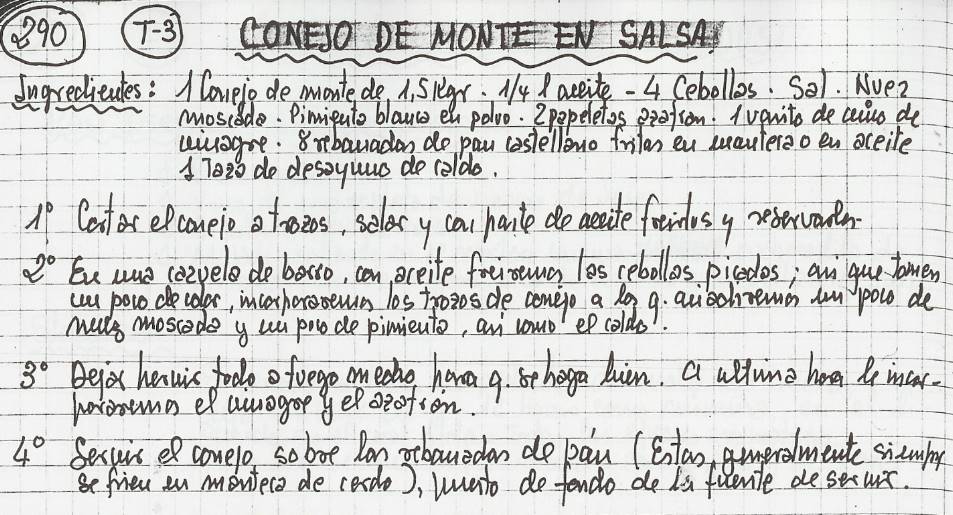 290 T-3 CONEJO DE MONTE EN SALSA
Ingredientes: 1 Conejo de monte de 1,5 Kgr. 1/4 l aceite - 4 Cebollas. Sal. Nuez
moscada. Pimienta blanca en polvo. 2 papeletas azafran. 1 vasito de vino de
vinagre. 8 rebanadas de pan castellano fritas en manteca o en aceite
1 Taza de desayuno de caldo.
1º Cortar el conejo a trozos, salar y con parte de aceite freirlos y reservarlos
2º En una cazuela de barro, con aceite freiremos las cebollas picadas; asi que tomen
un poco de color, incorporaremos los trozos de conejo a los q. añadiremos un poco de
nuez moscada y un poco de pimienta, asi como el caldo.
3º Dejar hervir todo a fuego medio para q. se haga bien. A ultima hora le incor-
poraremos el vinagre y el azafrán.
4º Servir el conejo sobre las rebanadas de pan (Estas generalmente siempre
se frien en manteca de cerdo), puesto de fondo de la fuente de servir.